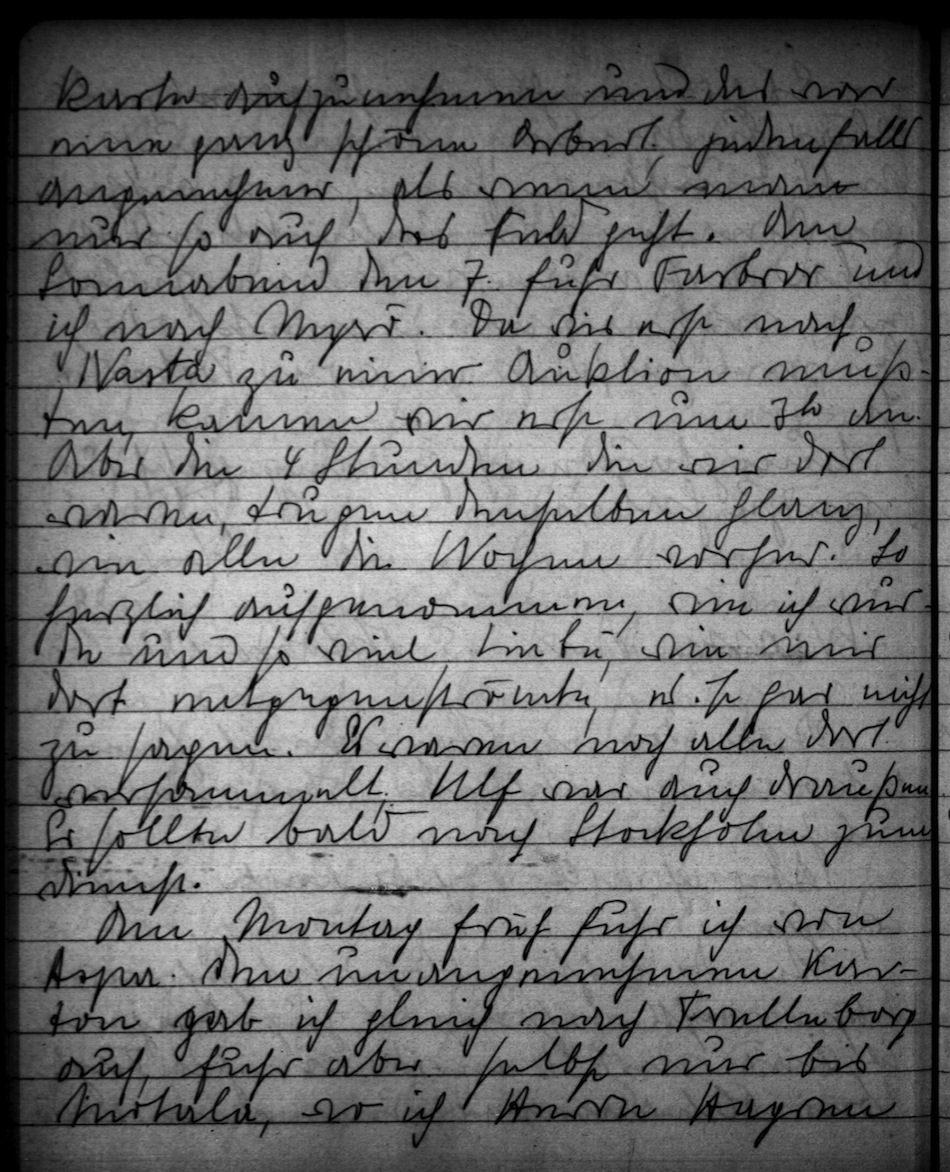 Karte aufzunehmen und das war
eine ganz schöne Arbeit, jedenfalls
angenehmer, als wenn man
nur so auf das Feld geht. Am
Sonnabend den 7. fuhr Farbror und
ich nach Myrö. Da wir erst nach
Narta zu einer Auktion muß-
ten, kamen wir erst um 7h an.
Aber die 4 Stunden die wir dort
waren, trugen denselben Glanz,
wie alle die Wochen vorher. So
herzlich aufgenommen, wie ich wur-
de und so viel Liebe, wie mir
dort entgegenströmte, ist gar nicht
zu sagen. Es waren noch alle dort
versammelt. Ulf war auch draußen.
Er sollte bald nach Stockholm zum
Dienst.
Am Montag früh fuhr ich von
Aspa. Den unangenehmen Kar-
ton gab ich gleich nach Trelleborg
auf, fuhr aber selbst nur bis
Motala, wo ich Herrn Hagren